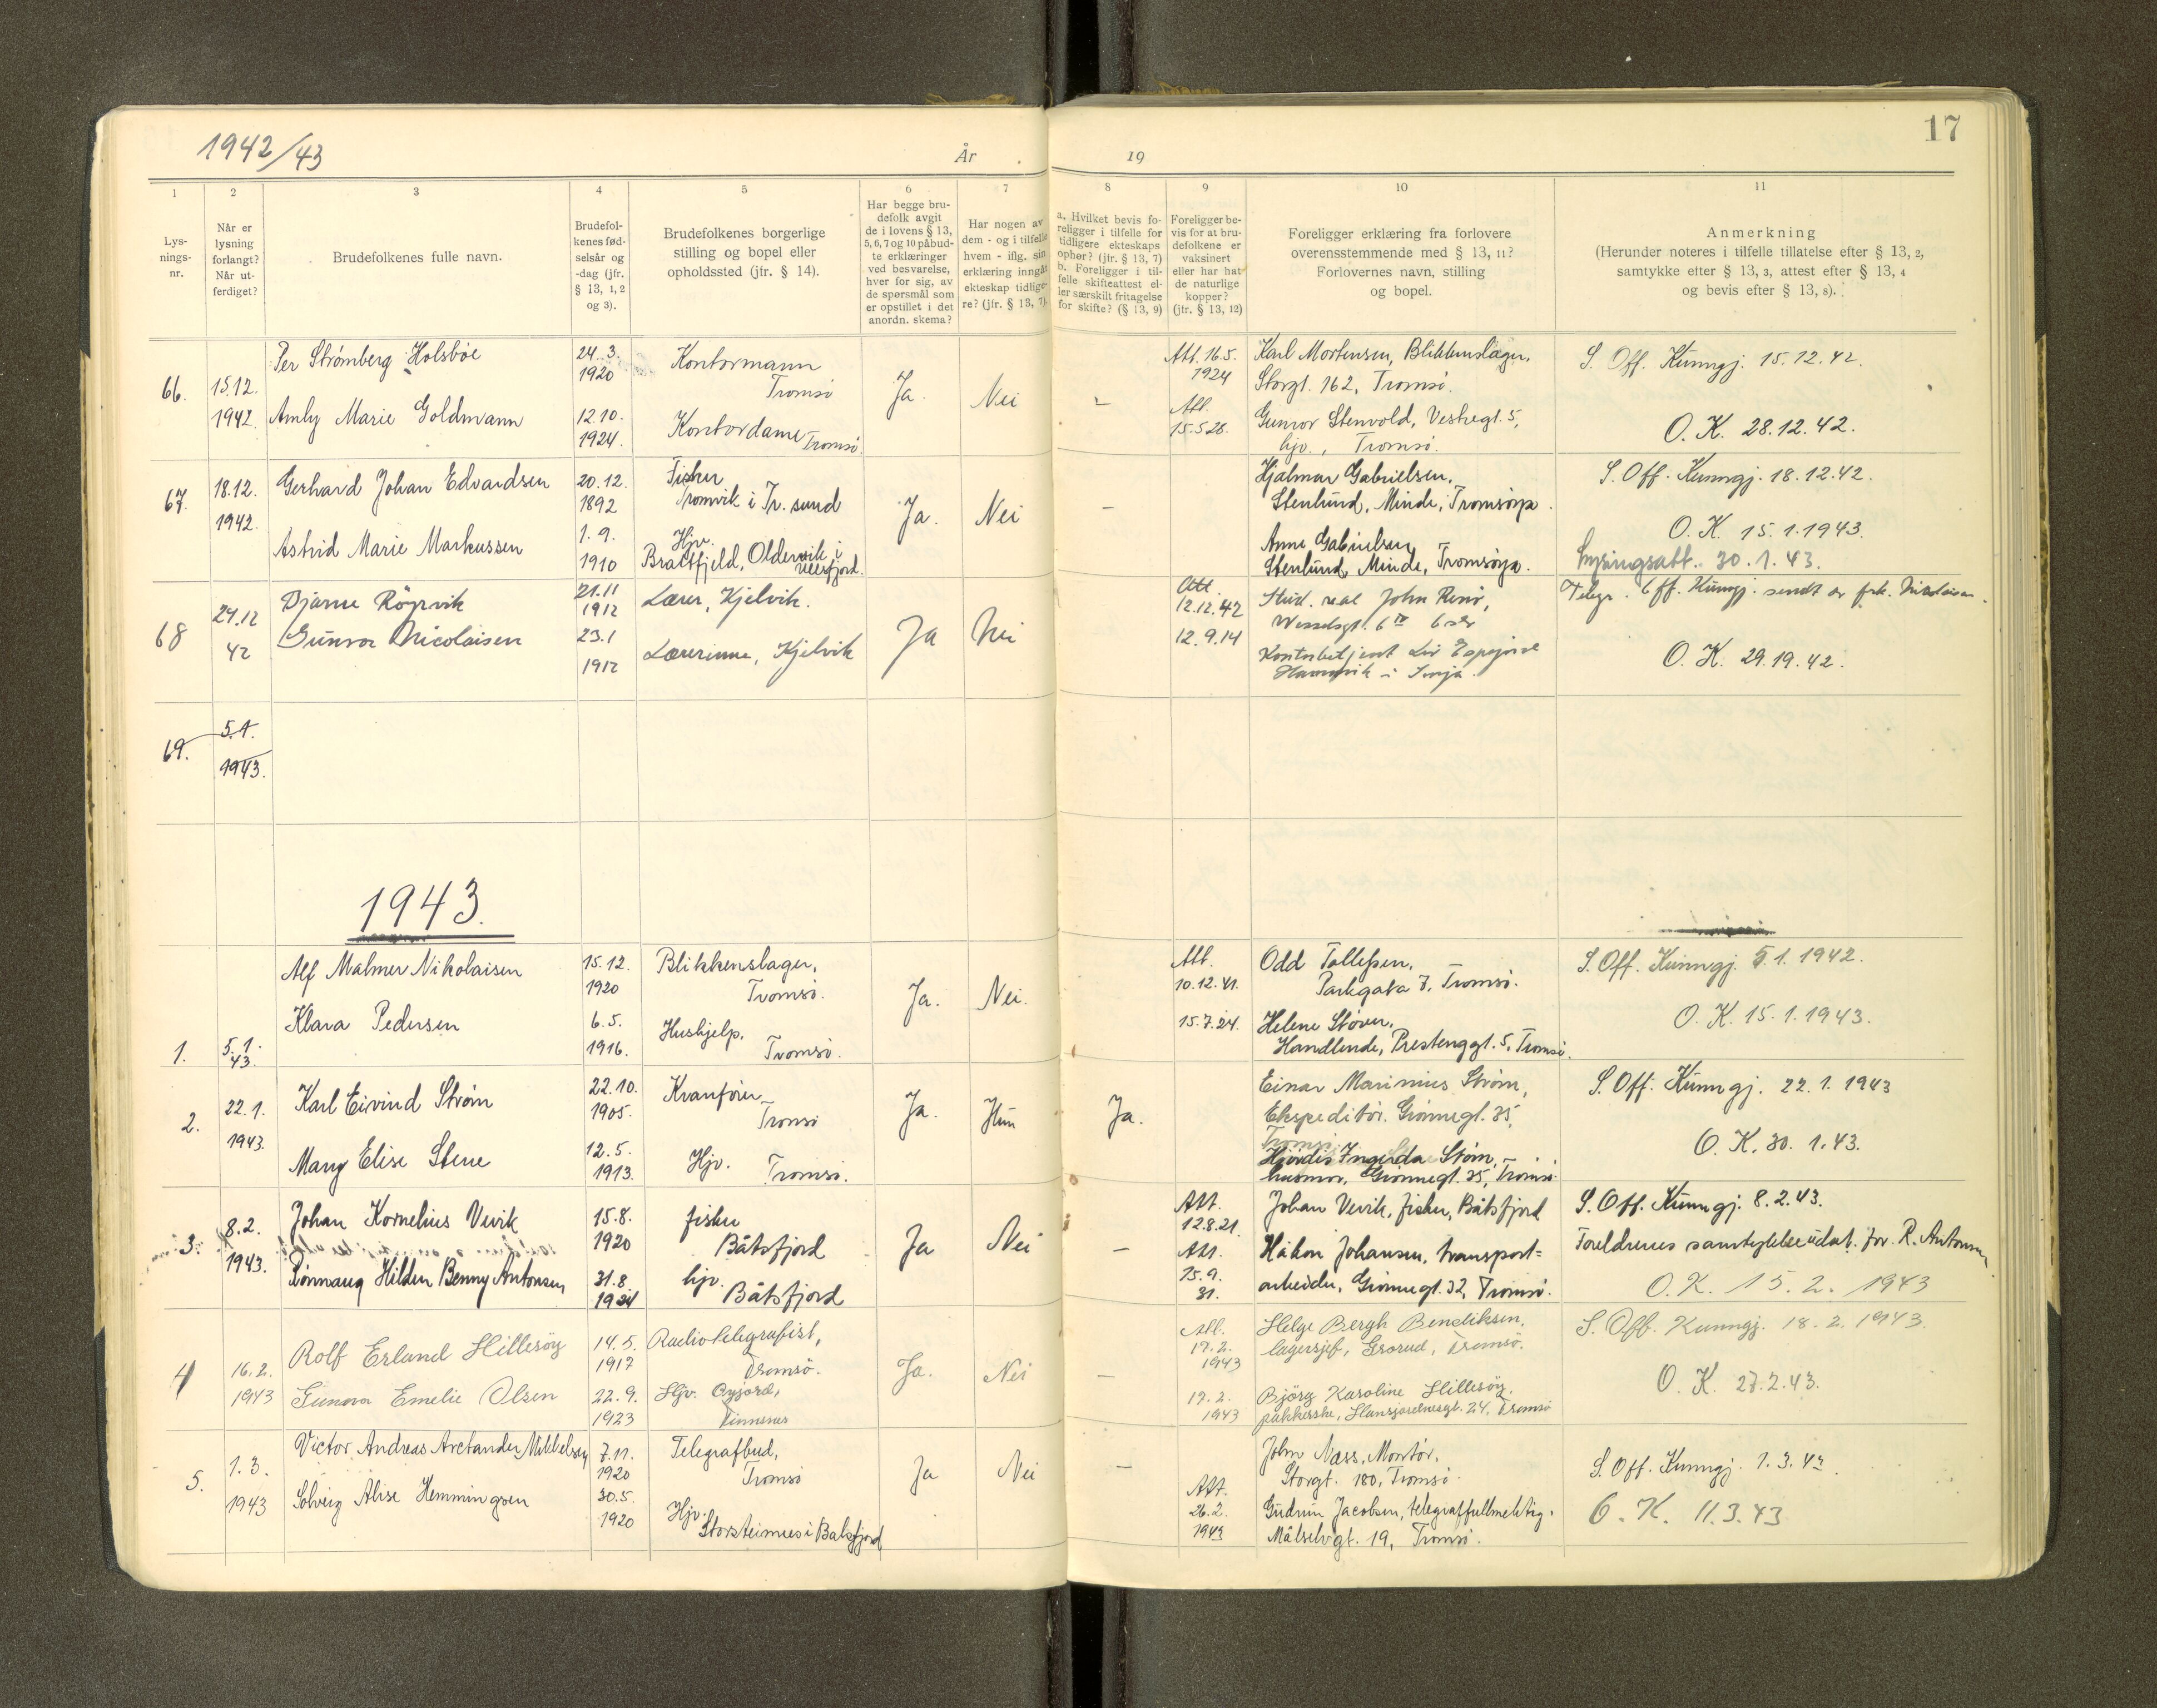 1942/43
År
19
17
1
2
3
4
5
6
7
8
9
10
11
Lys-
nings-
nr.
Når er
lysning
forlangt?
Når ut-
ferdiget?
Brudefolkenes fulle navn.
Brudefol-
kenes fød-
selsår og
-dag (jfr.
§ 13, 1, 2
og 3).
Brudefolkenes borgerlige
stilling og bopel eller
opholdssted (jfr. § 14).
Har begge bru-
defolk avgit
de i lovens § 13,
5, 6, 7 og 10 påbud-
te erklæringer
ved besvarelse,
hver for sig, av
de spørsmål som
er opstillet i det
anordn. skema?
Har nogen av
dem - og i tilfelle
hvem - iflg. sin
erklæring inngåt
ekteskap tidlige-
re? (jfr. § 13, 7).
a. Hvilket bevis fo-
religger i tilfelle for
tidligere ekteskaps
ophør? (jfr. § 13, 7)
b. Foreligger i til-
felle skifteattest el-
ler særskilt fritagelse
for skifte? (§ 13, 9)
Foreligger be-
vis for at bru-
defolkene er
vaksinert
eller har hat
de naturlige
kopper?
(jfr. § 13, 12)
Foreligger erklæring fra forlovere
overensstemmende med § 13, 11?
Forlovernes navn, stilling
og bopel.
Anmerkning
(Herunder noteres i tilfelle tillatelse efter § 13, 2,
samtykke efter § 13, 3, attest efter § 13, 4
og bevis efter § 13, 8).
66.
15.12.
1942.
Per Strømberg Holsbøe
Amly Marie Goldmann
24.3.
1920
12.10.
1924.
Kontormann
Tromsø
Kontordame
Tromsø
Ja.
Nei
–
Att. 16.5.
1924
Att.
15.5.28.
Karl Mortensen, Blikkenslager,
Storgt. 162, Tromsø.
Gunvor Stenvold, Vestregt. 5,
hjv., Tromsø.
S. Off. Kunngj. 15.12.42.
O. K. 28.12.42.
67.
18.12.
1942.
Gerhard Johan Edvardsen
Astrid Marie Markussen
20.12.
1892
1.9.
1910
Fisker
Tromvik i Tr. sund
Hjv.
Brattfjeld, Oldervik i
Ullsfjord.
Ja.
Nei
–
Hjalmar Gabrielsen,
Stenlund, Minde, Tromsøya.
Anne Gabrielsen
Stenlund, Minde, Tromsøya.
S. Off. Kunngj. 18.12.42.
O. K. 15.1.1943.
Lysingsatt. 30.1.43.
68
29.12
42
Bjarne Röyrvik
Gunvor Nicolaisen
21.11
1912
23.1
1912
Lærer, Kjelvik.
Lærerinne, Kjelvik
Ja
Nei
Att.
12.12.42
12.9.14
Stud. real John Renö,
Wesselsgt. 6 IV Oslo
Kontorbetjent Liv Espejord
Hamnvik i Senja.
Telegr. Off. Kunngj. sendt av frk. Nicolaisen.
O. K. 29.19.42.
69.
5.1.
1943.
1943.
1.
5.1.
43.
Alf Malmer Nikolaisen
Klara Pedersen
15.12.
1920
6.5.
1916.
Blikkenslager,
Tromsø.
Hushjelp,
Tromsø.
Ja.
Nei.
Att.
10.12.41.
15.7.24.
Odd Tollefsen,
Parkgata 7, Tromsø.
Helene Støver,
Handlende, Prestenggt. 5, Tromsø.
S. Off. Kunngj. 5.1.1942.
O. K. 15.1.1943.
2.
22.1.
1943.
Karl Eivind Strøm
Mary Elise Stene
22.10.
1905.
12.5.
1913.
Kranfører
Tromsø
Hjv. Tromsø.
Ja.
Hun
Ja.
Einar Marinius Strøm,
Ekspeditør. Grønnegt. 35,
Tromsø
Hjørdis Ingerda Strøm,
husmor, Grønnegt. 35, Tromsø.
S. Off. Kunngj. 22.1.1943
O. K. 30.1.43.
3.
8.2.
1943.
Johan Kornelius Vevik
Rönnaug Hildur Benny Antonsen
15.8.
1920
31.8.
1924
fisker
Båtsfjord
hjv.
Båtsfjord
Ja
Nei
–
Att.
12.8.21.
Att.
15.9.
31.
Johan Vevik, fisker, Båtsfjord
Håkon Johansen, transport=
arbeider, Grønnegt. 32, Tromsø.
S. Off. Kunngj. 8.2.43.
Foreldrenes samtykkelse udat. for R. Antonsen.
O. K. 15.2.1943
4
16.2.
1943
Rolf Erland Hillesöy
Gunvor Emelie Olsen
14.5.
1917
22.9.
1923
Radiotelegrafist,
Tromsö.
Hjv. Öyjord,
Finnsnes
Ja.
Nei
–
Att.
17.2.
1943
17.2.
1943
Helge Bergh Bendiksen,
lagersjef, Grorud, Tromsö.
Björg Karoline Hillesöy,
pakkerske, Hansjordnesgt. 24, Tromsö
S. Off. Kunngj. 18.2.1943.
O. K. 27.2.43.
5.
1.3.
1943
Victor Andreas Arctander Mikkelsen
Solveig Alise Hemmingsen
7.11.
1920
30.5.
1920
Telegrafbud,
Tromsø
Hjv.
Storsteinnes i Balsfjord
Ja
Nei
–
Att.
26.2.
1943
John Næss, Montør,
Storgt. 180, Tromsø.
Gudrun Jacobsen, telegraffullmektig.
Målselvgt. 19, Tromsø.
S. Off. Kunngj. 1.3.43.
O. K. 11.3.43